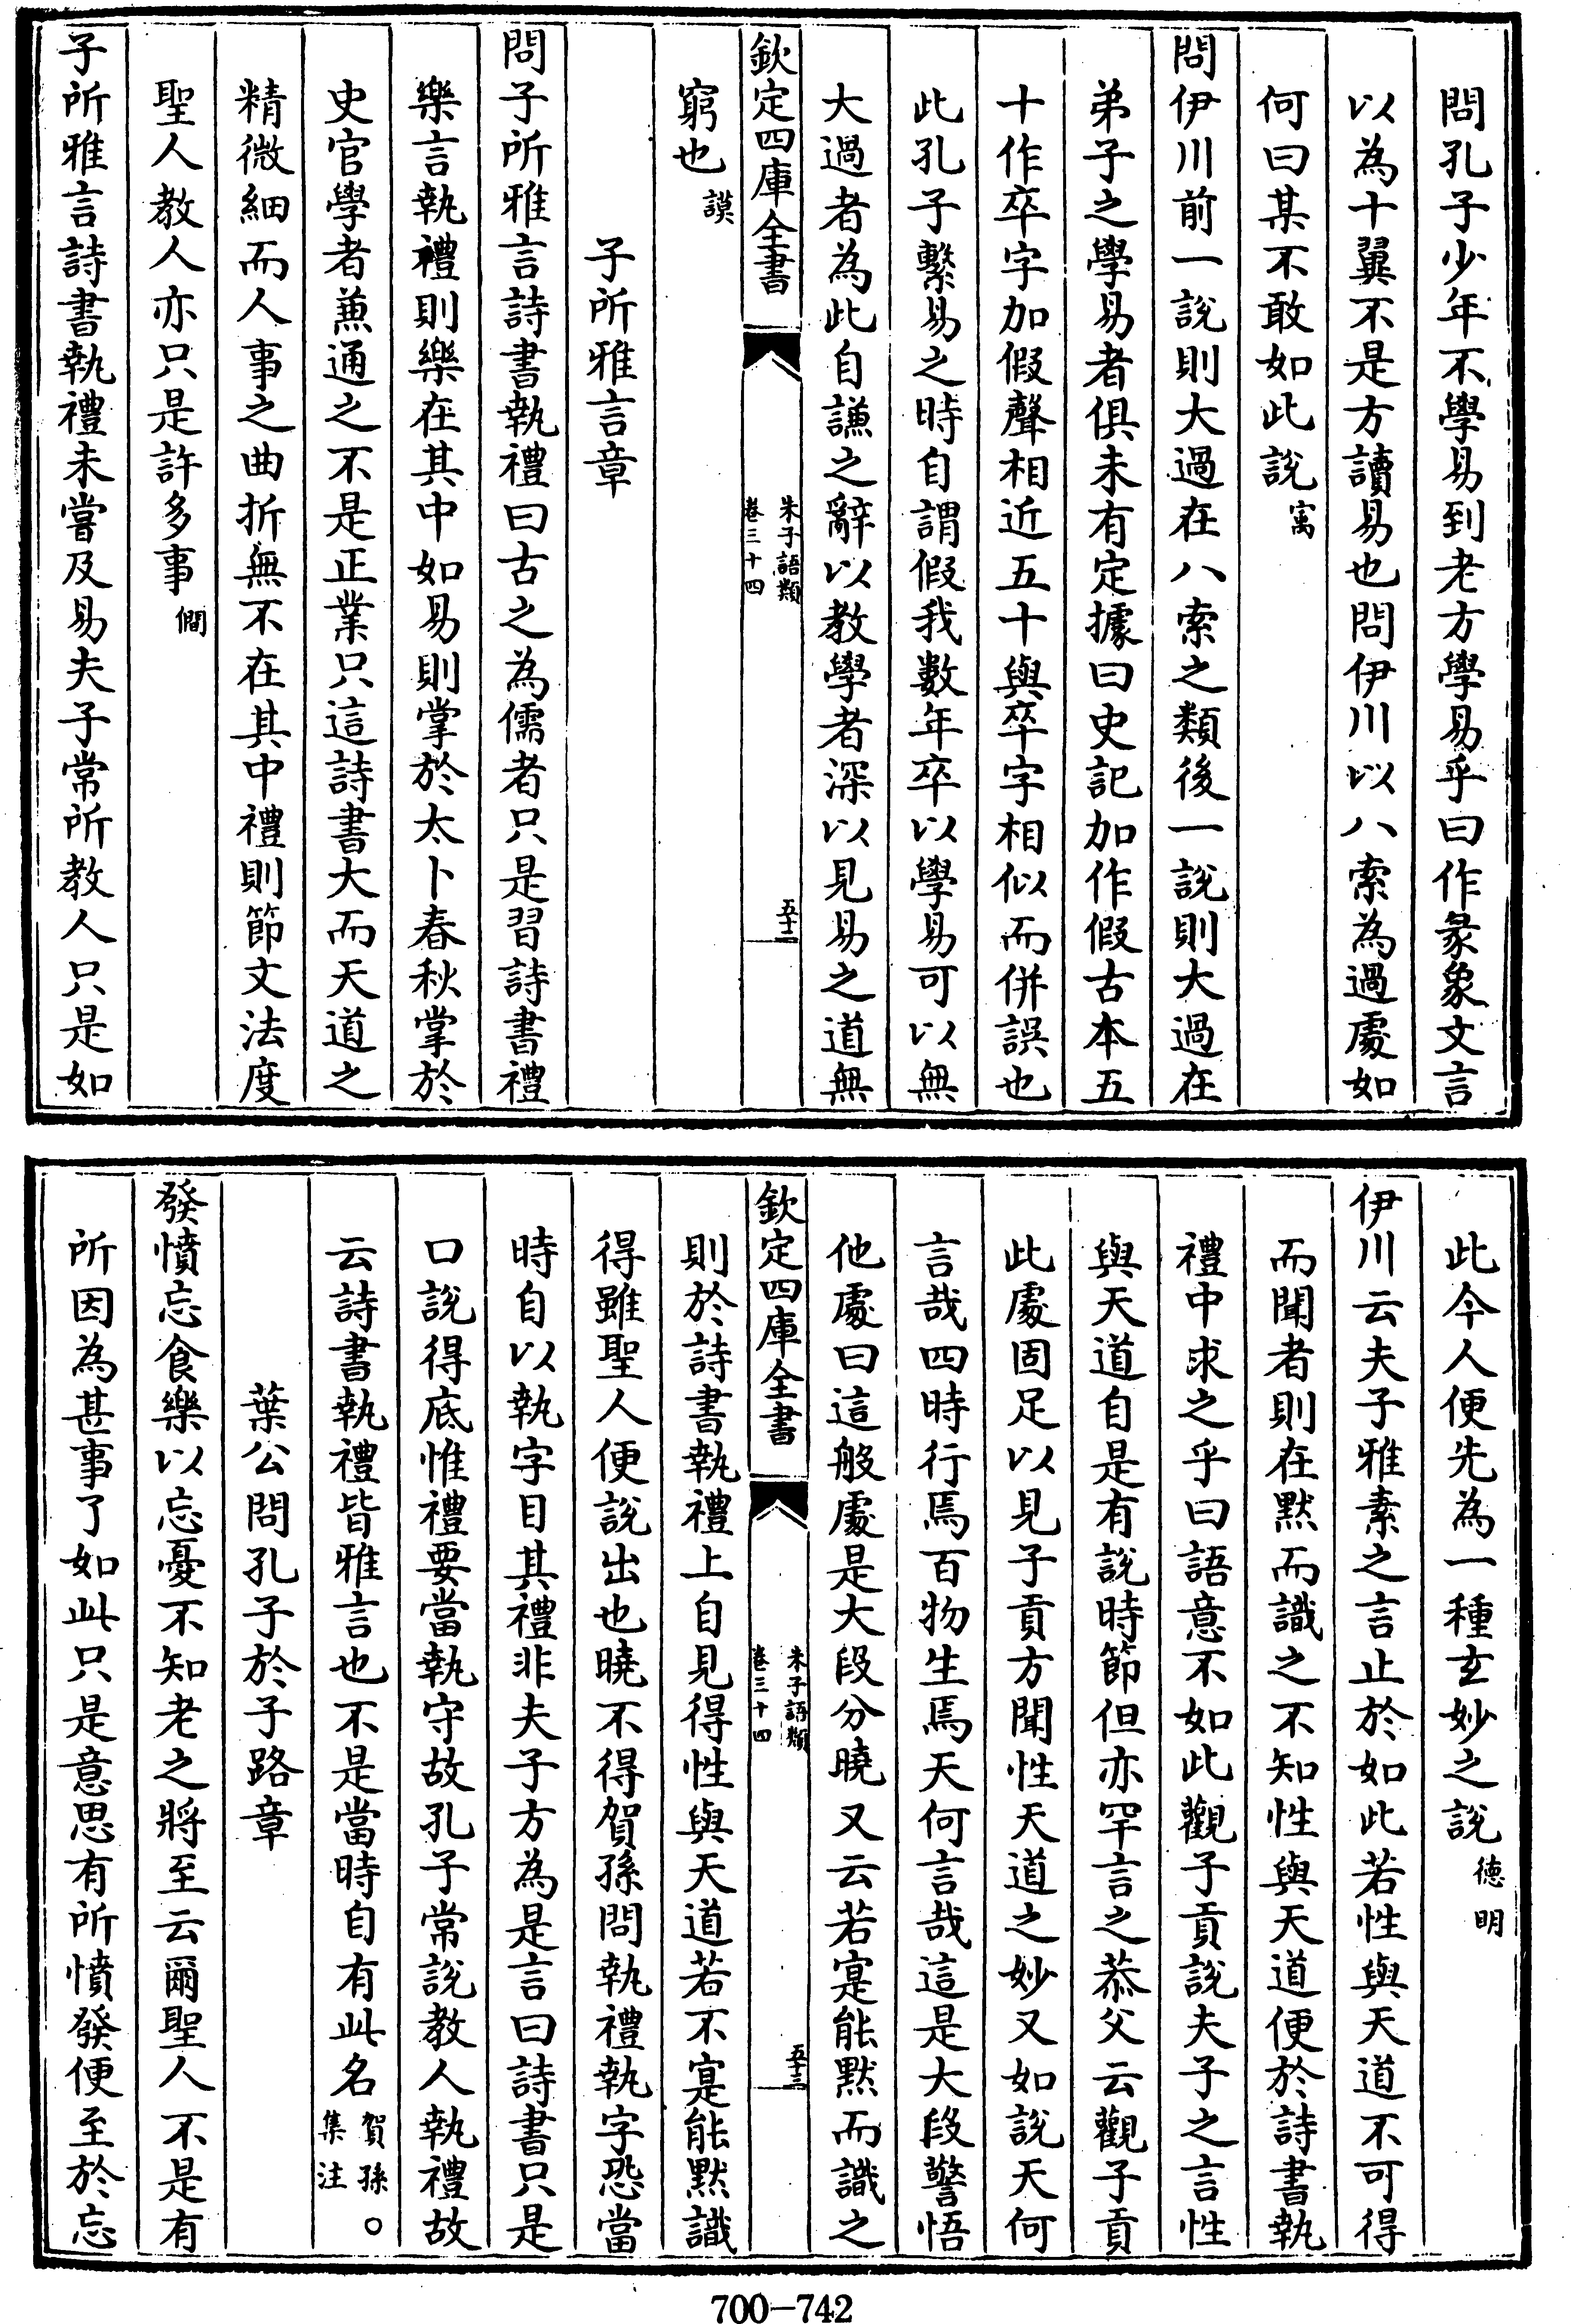 問孔子少年不學易到老方學易乎曰作彖象文言
以為十翼不是方讀易也問伊川以八索為過處如
何曰某不敢如此說㝢
問伊川前一說則大過在八索之類後一說則大過在
弟子之學易者俱未有定據曰史記加作假古本五
十作卒字加假聲相近五十與卒字相似而併誤也
此孔子繫易之時自謂假我數年卒以學易可以無
大過者為此自謙之辭以教學者深以見易之道無
欽定四庫全書 朱子語類 卷三十四 五十二
窮也 謨
子所雅言章
問子所雅言詩書執禮曰古之為儒者只是習詩書禮
樂言執禮則樂在其中如易則掌於太卜春秋掌於
史官學者兼通之不是正業只這詩書大而天道之
精微細而人事之曲折無不在其中禮則節文法度
聖人教人亦只是許多事 僩
子所雅言詩書執禮未嘗及易夫子常所教人只是如
此今人便先為一種玄妙之說 德明
伊川云夫子雅素之言止於如此若性與天道不可得
而聞者則在黙而識之不知性與天道便於詩書執
禮中求之乎曰語意不如此觀子貢說夫子之言性
與天道自是有說時節但亦罕言之恭父云觀子貢
此處固足以見子貢方聞性天道之妙又如說天何
言哉四時行焉百物生焉天何言哉這是大段警悟
他處曰這般處是大段分曉又云若寔能黙而識之
欽定四庫全書 朱子語類 卷三十四 五十三
則於詩書執禮上自見得性與天道若不寔能黙識
得雖聖人便說出也曉不得賀孫問執禮執字恐當
時自以執字目其禮非夫子方為是言曰詩書只是
口說得底惟禮要當執守故孔子常說教人執禮故
云詩書執禮皆雅言也不是當時自有此名 賀孫。集注
葉公問孔子於子路章
發憤忘食樂以忘憂不知老之將至云爾聖人不是有
所因為甚事了如此只是意思有所憤發便至於忘
700-742